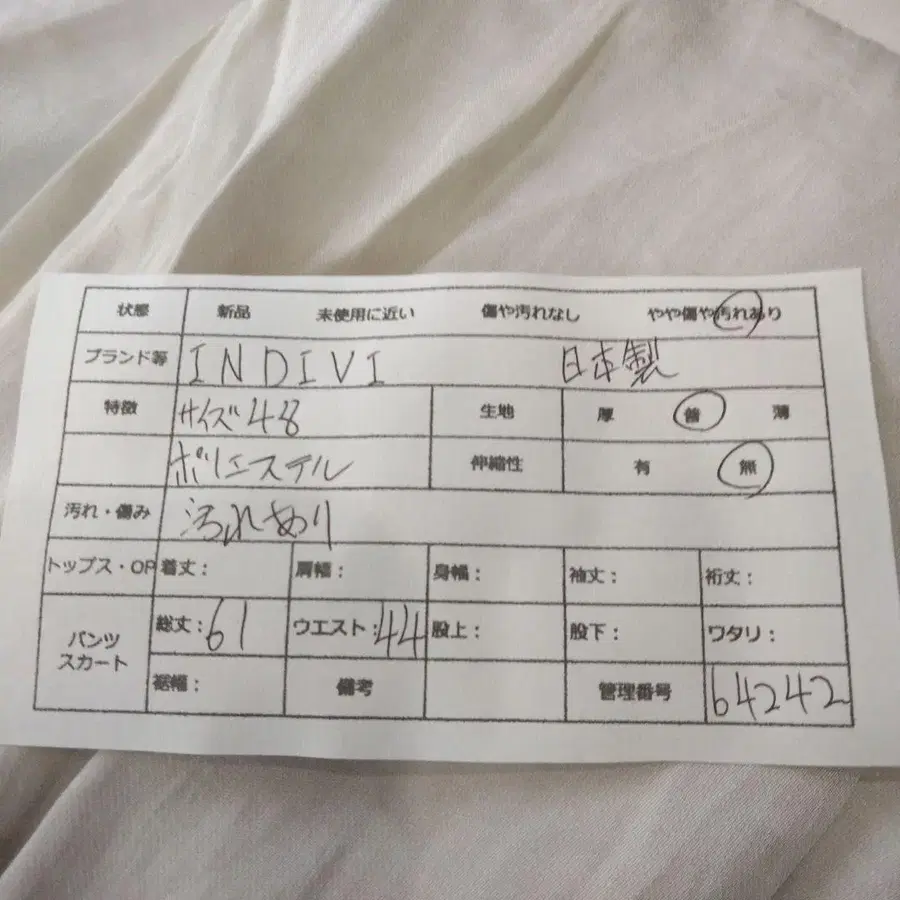 状態 新品 未使用に近い 傷や汚れなし やや傷や汚れあり
ブランド等 INDIVI 日本製
特徴 サイズ48 生地 厚 普 薄
ポリエステル 伸縮性 有 無
汚れ・傷み 汚れあり
トップス・OP 着丈: 肩幅: 身幅: 袖丈: 裄丈:
パンツ スカート 総丈:61 ウエスト:44 股上: 股下: ワタリ:
裾幅: 備考 管理番号 64242